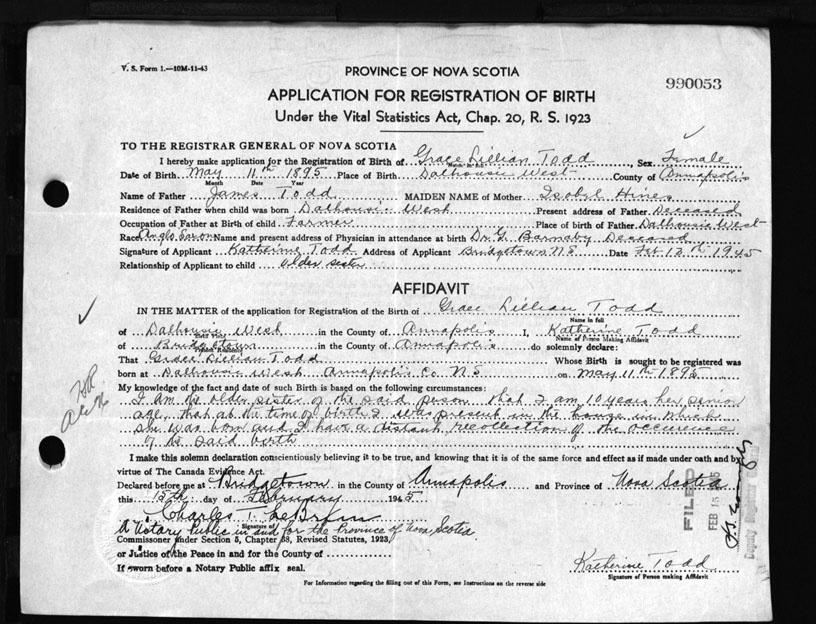 V. S. Form 1.—10M-11-43
PROVINCE OF NOVA SCOTIA
990053
APPLICATION FOR REGISTRATION OF BIRTH
Under the Vital Statistics Act, Chap. 20, R. S. 1923
TO THE REGISTRAR GENERAL OF NOVA SCOTIA
I hereby make application for the Registration of Birth of Grace Lillian Todd, Sex Female
Date of Birth May 11th 1895 Place of Birth Dalhousie West County of Annapolis
Month Date Year
Name of Father James Todd MAIDEN NAME of Mother Isobel Hines
Residence of Father when child was born Dalhousie West Present address of Father Deceased
Occupation of Father at Birth of child Farmer Place of birth of Father Dalhousie West
Race Anglo Saxon Name and present address of Physician in attendance at birth Dr. G. Barnaby Deceased
Signature of Applicant Katherine Todd Address of Applicant Bridgetown N.S. Date Feb 12th 1945
Relationship of Applicant to child older sister
AFFIDAVIT
IN THE MATTER of the application for Registration of the Birth of Grace Lillian Todd
Name in full
of Dalhousie West in the County of Annapolis I, Katherine Todd
Name of Person Making Affidavit
of Bridgetown in the County of Annapolis do solemnly declare:
That Grace Lillian Todd Whose Birth is sought to be registered was
born at Dalhousie West Annapolis Co N.S on May 11th 1895
My knowledge of the fact and date of such Birth is based on the following circumstances:
I am the older sister of the said person that I am 10 years her senior
age, that at the time of birth I was present in the house in which
she was born and I have a distant recollection of the occurence
of the said birth
I make this solemn declaration conscientiously believing it to be true, and knowing that it is of the same force and effect as if made under oath and by
virtue of The Canada Evidence Act.
Declared before me at Bridgetown in the County of Annapolis and Province of Nova Scotia
this 15th day of February 1945
Charles T.
Signature of
A Notary Public in and for the Province of Nova Scotia
Commissioner under Section 5, Chapter 38, Revised Statutes, 1923,
or Justice of the Peace in and for the County of
If sworn before a Notary Public affix seal.
Katherine Todd
Signature of Person making Affidavit
For Information regarding the filling out of this Form, see Instructions on the reverse side
FILED
FEB
Deputy Registrar